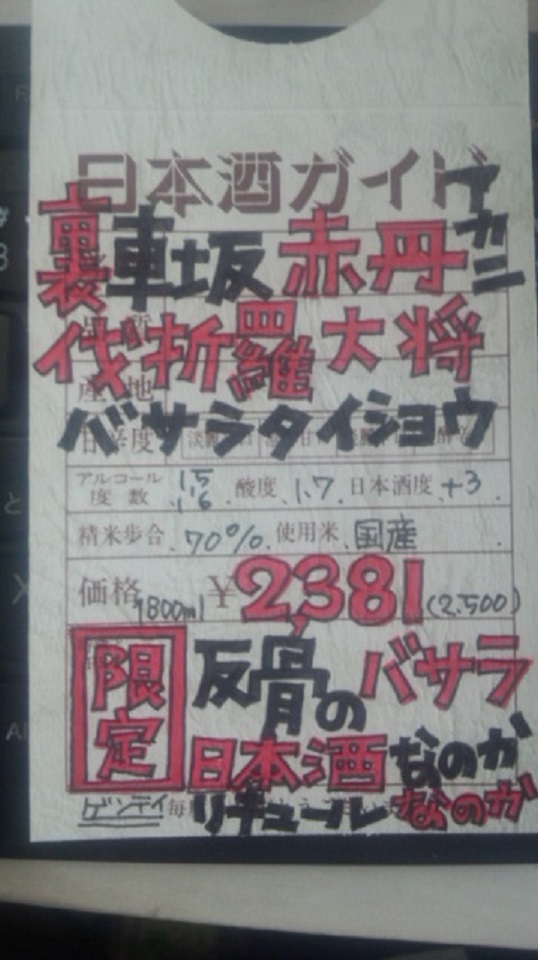 日本酒ガイド
裏車坂赤丹アカニ
伐折羅大将
産地
バサラタイショウ
甘辛度
アルコール度数 15 16 酸度 1.7 日本酒度 +3
精米歩合 70% 使用米 国産
価格 1800ml ¥2,381 (2.500)
限定 反骨のバサラ
日本酒なのか
ゲンテイ リキュールなのか